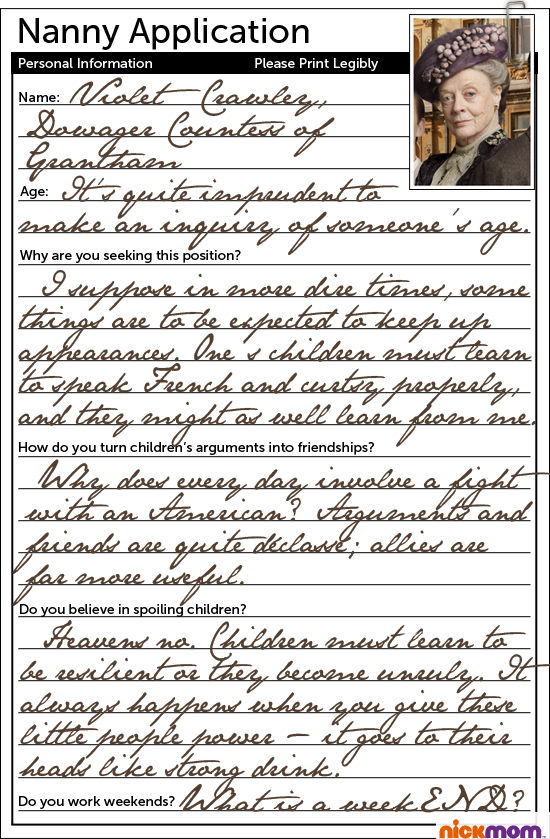 Nanny Application
Personal Information Please Print Legibly
Name: Violet Crawley,
Dowager Countess of
Grantham
Age: It's quite imprudent to
make an inquiry of someone's age.
Why are you seeking this position?
I suppose in more dire times, some
things are to be expected to keep up
appearances. One's children must learn
to speak French and curtsy properly,
and they might as well learn from me.
How do you turn children's arguments into friendships?
Why does every day involve a fight
with an American? Arguments and
friends are quite déclassé; allies are
far more useful.
Do you believe in spoiling children?
Heavens no. Children must learn to
be resilient or they become unruly. It
always happens when you give these
little people power – it goes to their
heads like strong drink.
Do you work weekends? What is a weekEND?
nickmom